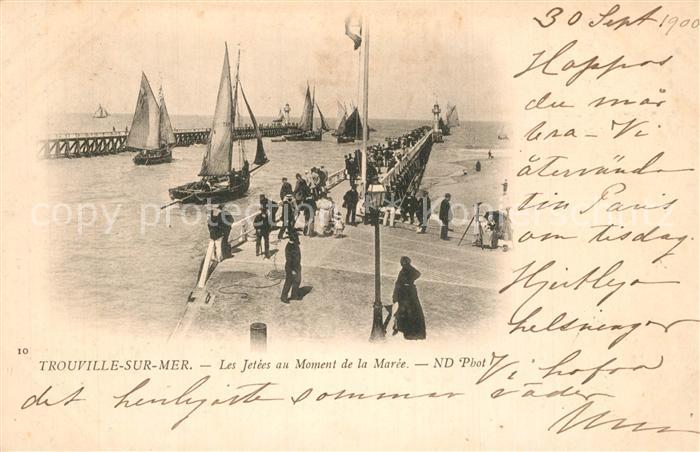 30 Sept 1900
Hoppas
du mår
bra - Vi
återvända
till Paris
om tisdag.
Hjertliga
helsningar
Vi hafva
det henligaste sommar väder
copyright by ansichtskarten-kompetenzer
10
TROUVILLE-SUR-MER. — Les Jetées au Moment de la Marée. — ND Phot